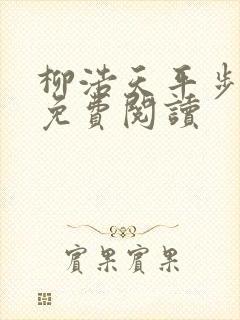 柳浩天平步
免費閱讀
賓果賓果